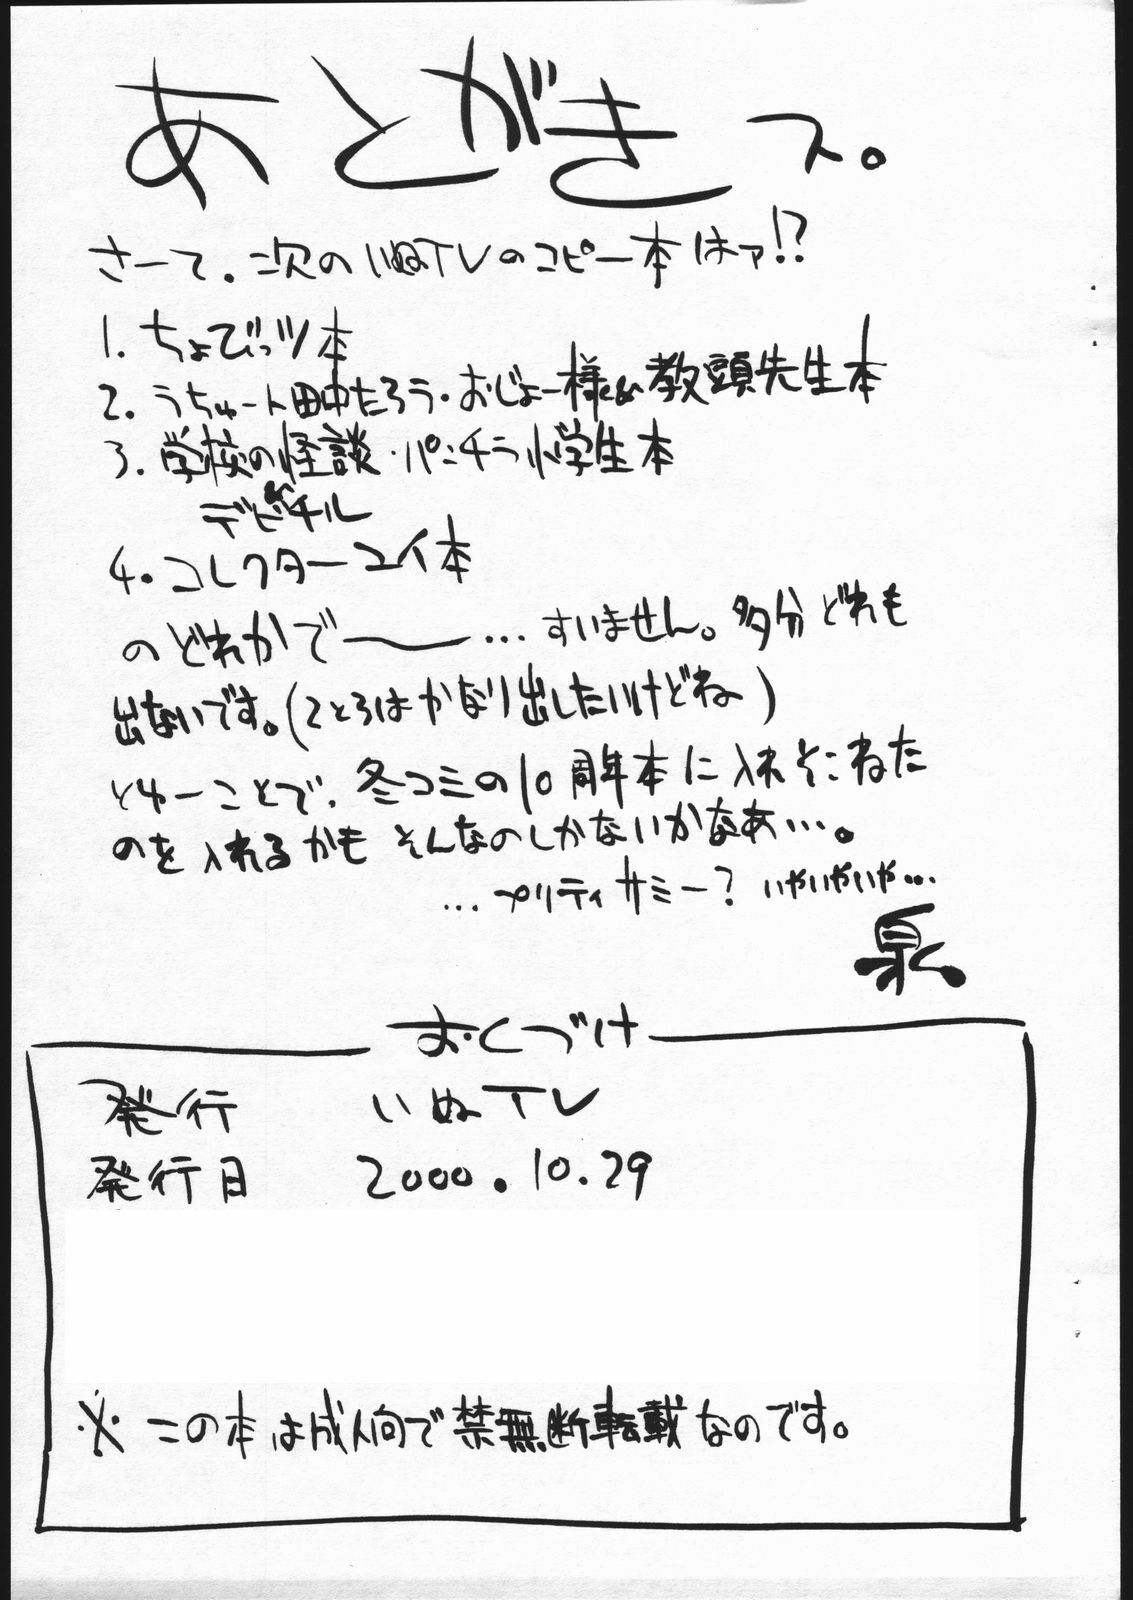 あとがきっス。
さーて。次のいぬTVのコピー本はァ!?
1. ちょびっツ本
2. うちゅー人田中たろう・おじょー様&教頭先生本
3. 学校の怪談・パンチラ小学生本
デビチル
4. コレクターユイ本
のどれかで――…すいません。多分どれも
出ないです。(2と3はかなり出したいけどね)
とゆーことで、冬コミの10周年本に入れそこねた
のを入れるかも そんなのしかないかなあ…。
…プリティサミー? いやいやいや…
泉
おくづけ
発行 いぬTV
発行日 2000.10.29
※この本は成人向で禁無断転載なのです。